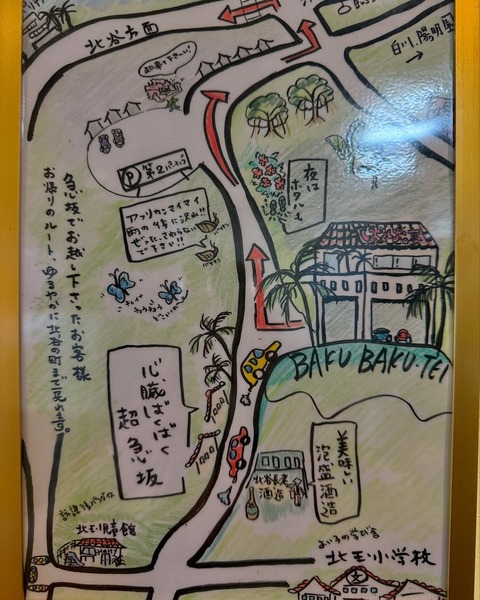 北谷方面
白川、陽明屋
P 第2パーキング
アフリカンマイマイ
雨の倍に沢山!!
ぜったいさわらない
で下さい!!
夜は
ホタルも
急な坂でお越し下さったお客様
お帰りのルート、ゆるやかに北谷の町まで戻れます。
BAKU BAKU-TEI
心臓ばくばく
超急坂
美味しい
泡盛酒造
北谷長老
酒造
北玉児童館
よい子の学び舎
北玉小学校